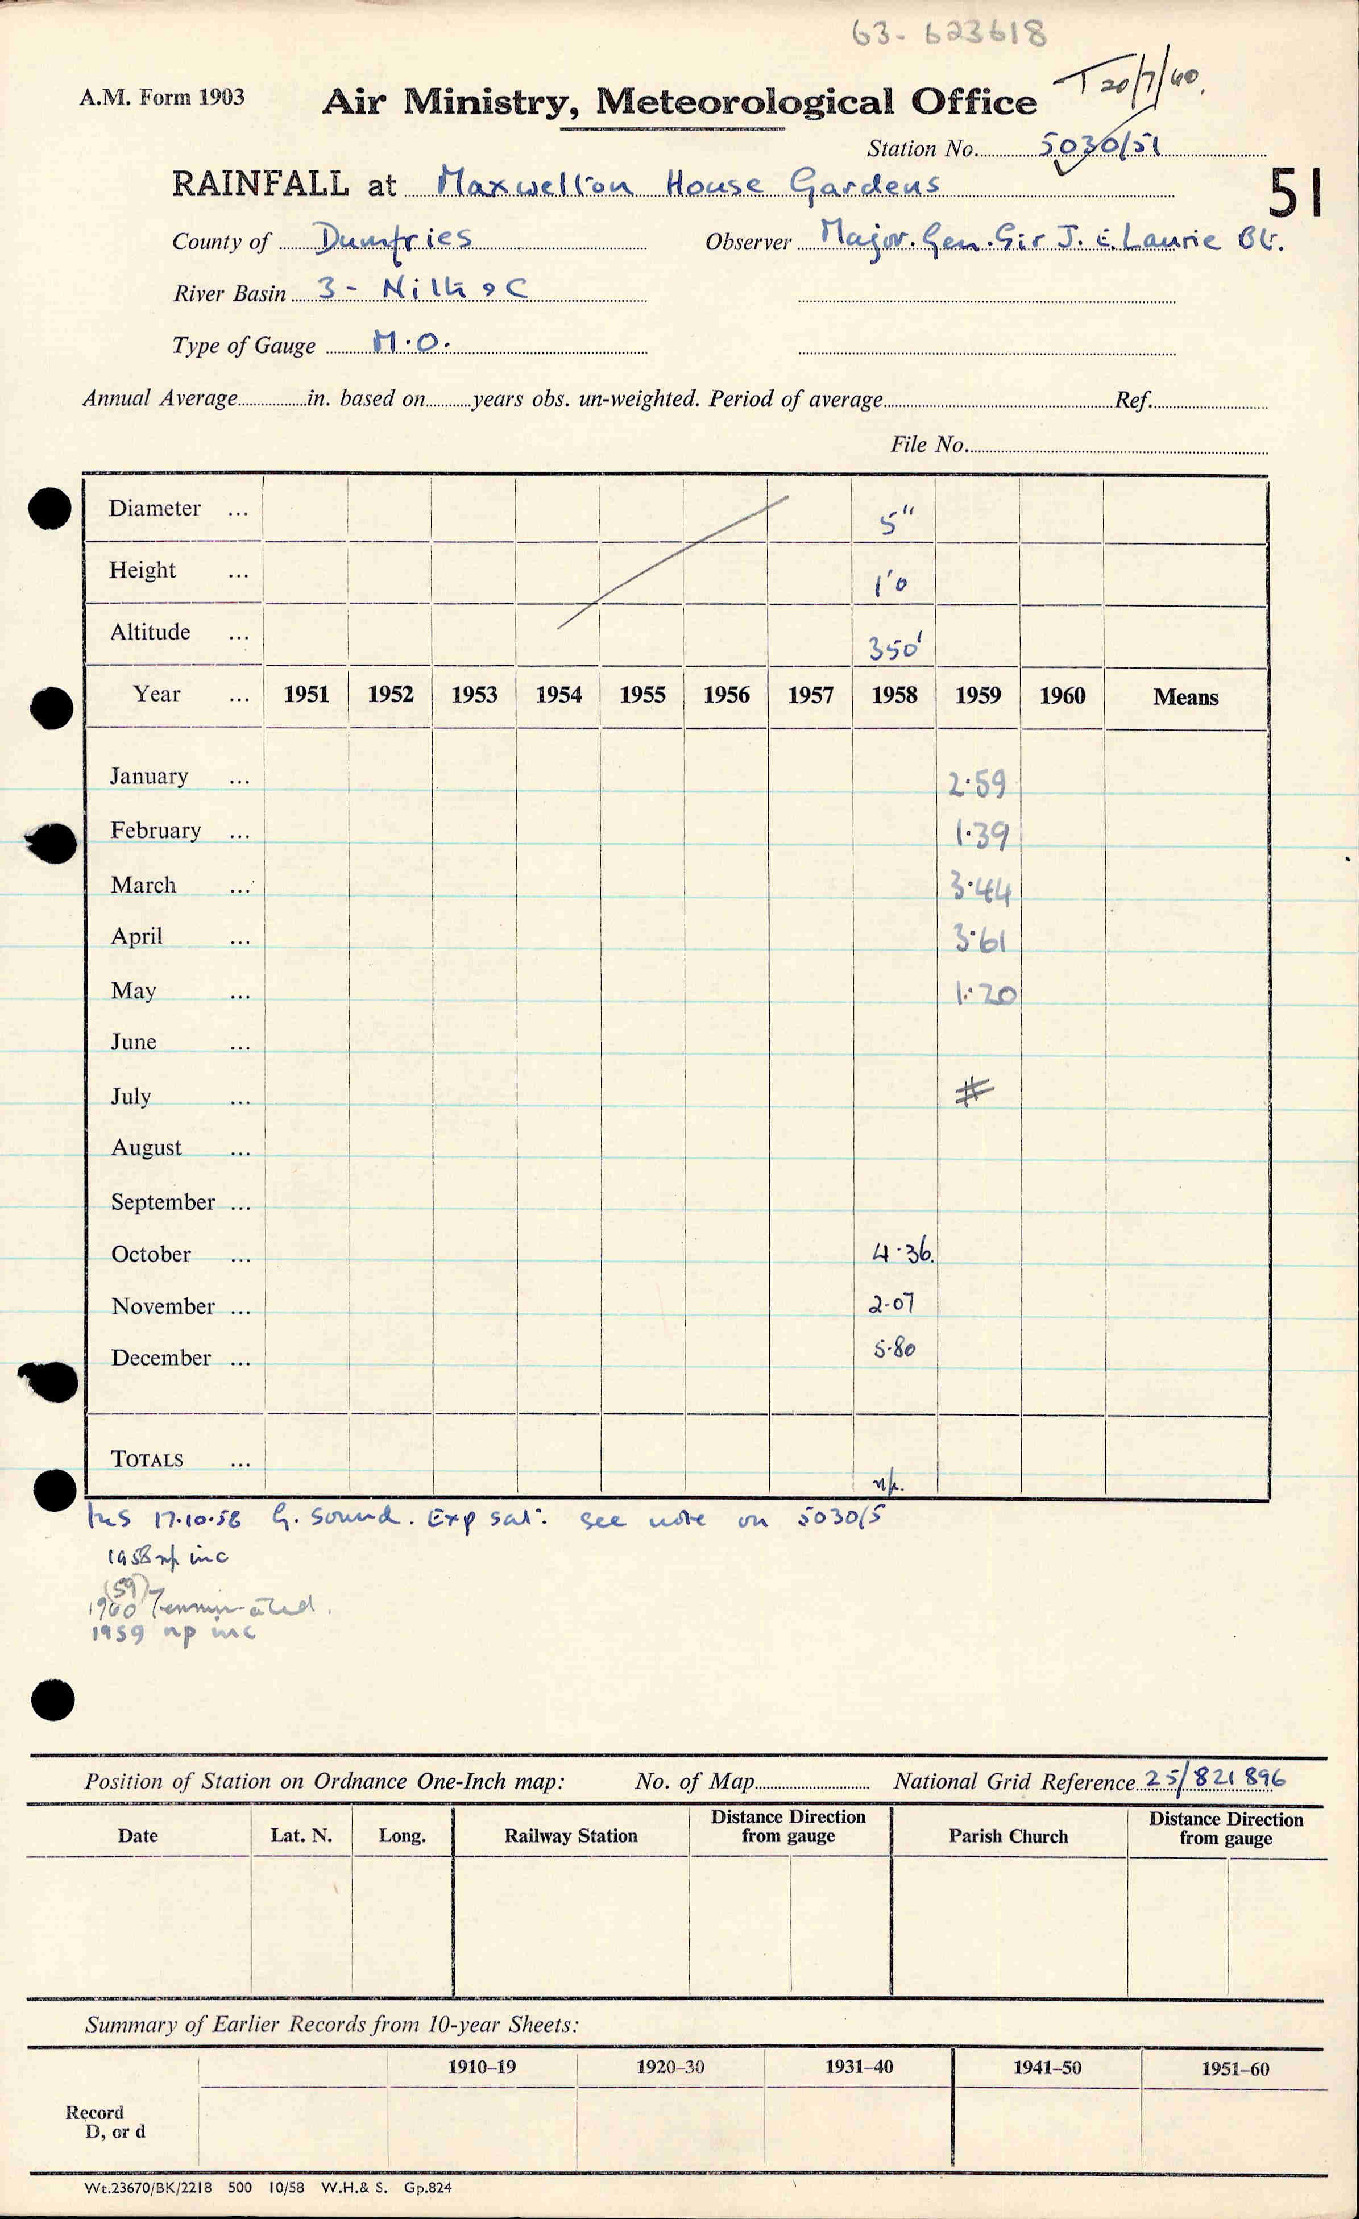 63- 623618
T 20/7/60.
A.M. Form 1903
Air Ministry, Meteorological Office
Station No. 5030/51
RAINFALL at Maxwelton House Gardens
51
County of Dumfries Observer Major. Gen. Sir J. E. Laurie Bt.
River Basin 3 - Nith & C
Type of Gauge M.O.
Annual Average in. based on years obs. un-weighted. Period of average Ref.
File No.
Diameter ... 5"
Height ... 1'0
Altitude ... 350'
Year ... 1951 1952 1953 1954 1955 1956 1957 1958 1959 1960 Means
January ... 2.59
February ... 1.39
March ... 3.44
April ... 3.61
May ... 1.20
June ...
July ... #
August ...
September ...
October ... 4.36.
November ... 2.07
December ... 5.80
TOTALS ... n/p.
Ins 17.10.58 G. Sound. Exp sat: see note on 5030/5
1958 np inc
(59)
1960 Terminated.
1959 np inc
Position of Station on Ordnance One-Inch map: No. of Map National Grid Reference 25/821896
Date Lat. N. Long. Railway Station Distance Direction from gauge Parish Church Distance Direction from gauge
Summary of Earlier Records from 10-year Sheets:
1910-19 1920-30 1931-40 1941-50 1951-60
Record
D, or d
Wt.23670/BK/2218 500 10/58 W.H.& S. Gp.824